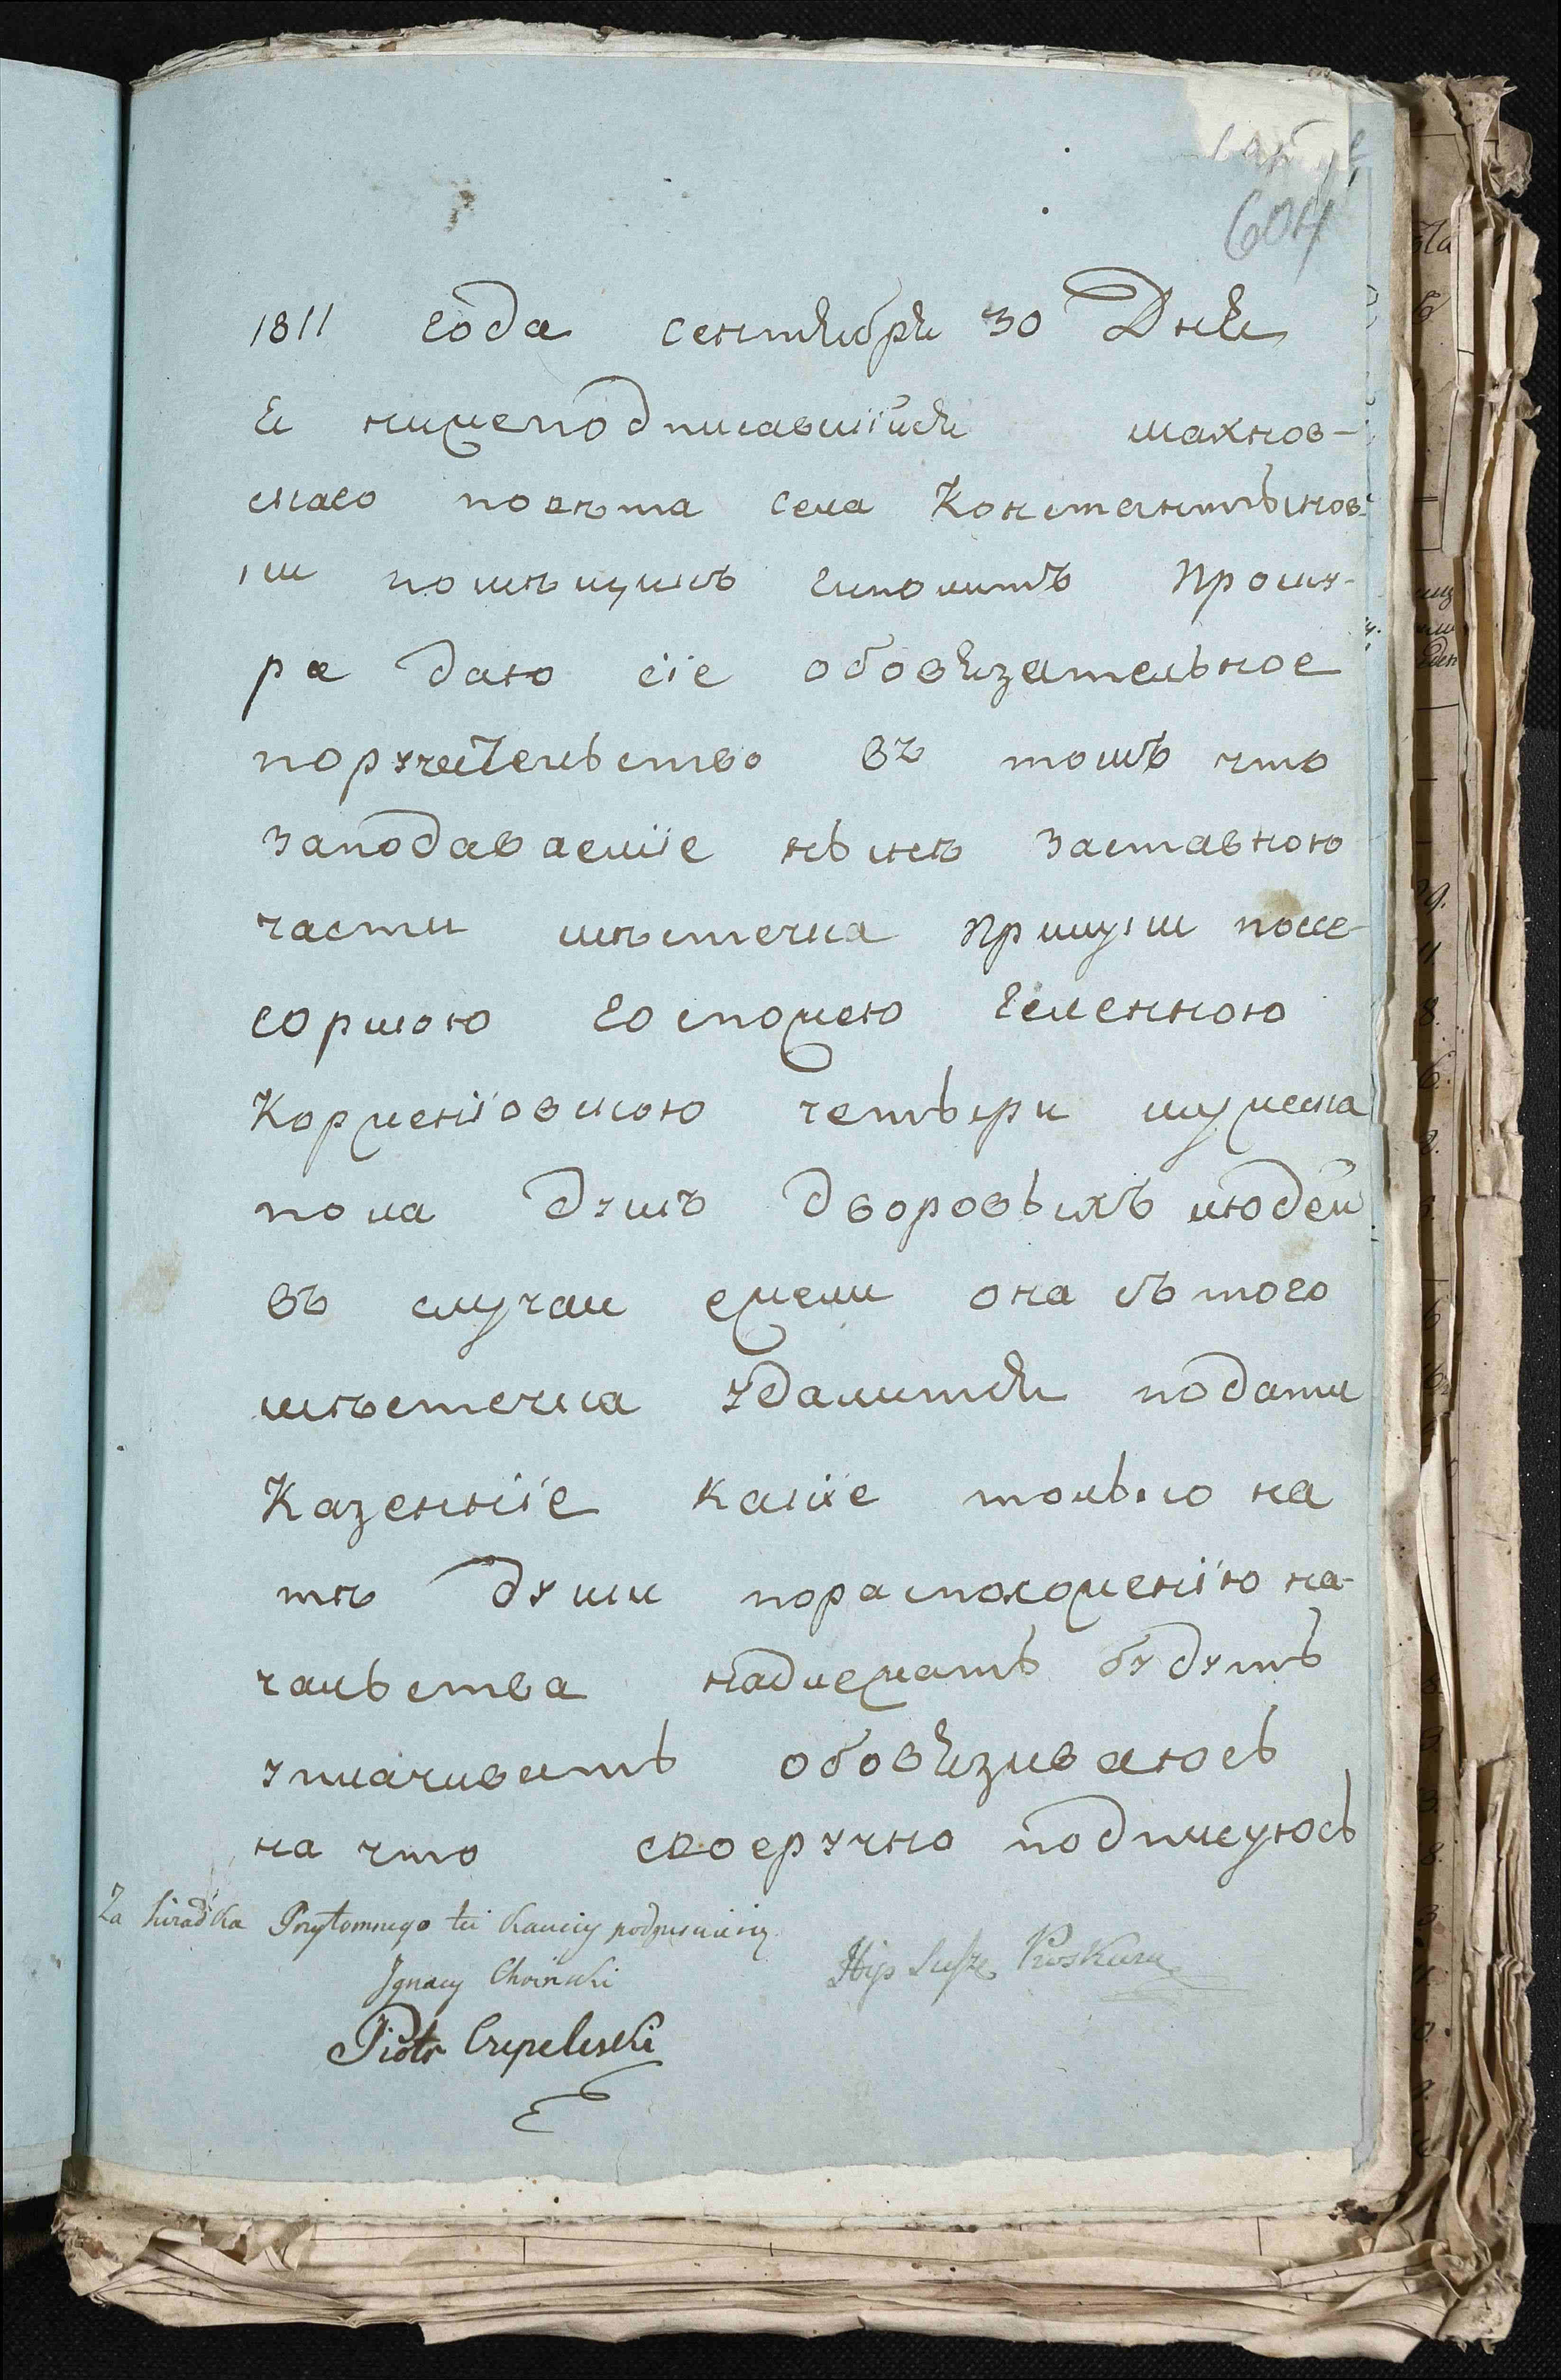 604
1811 года сентября 30 Дня
Я нижеподписавшійся махнов-
скаго повѣта села Константынов-
ки помѣщикъ Гиполитъ Проску-
ра даю сіе обовязательное
поручительство въ томъ что
заподаваеміе нынѣ заставною
части мѣстечка Прилуки посе-
соркою Госпожею Геленною
Корженіовскою четыри мужеска
пола душъ дворовыхъ людей
въ случаи ежели она съ того
мѣстечка удалится подати
Казенніе какіе только на
тѣ души порасположенію на-
чальства надлежать будутъ
уплачивать обовязиваюсь
на что своеручно подписуюсь
Za Swiadka Przytomnego tei Kaucij podpisuie się
Ignacy Choinski
Hip Suszc Proskura
Piotr Czepeleski